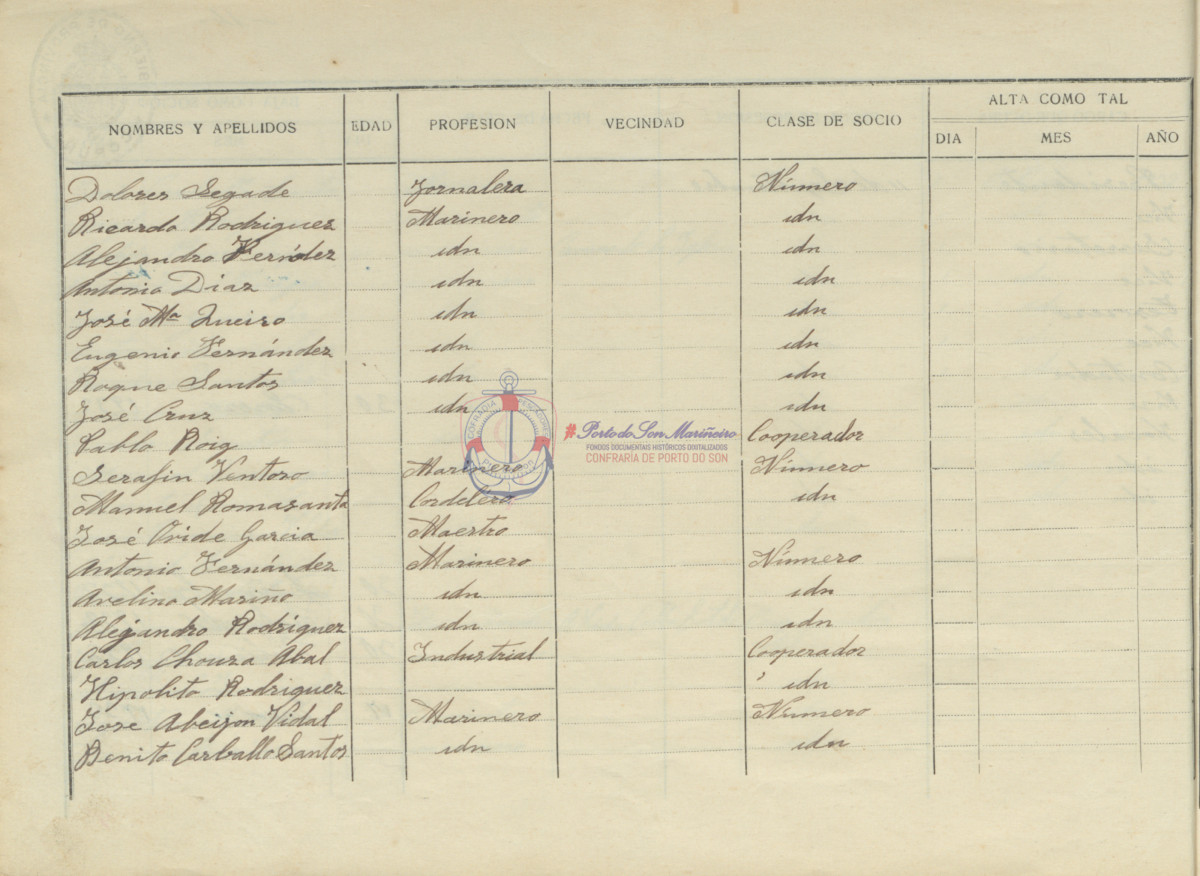 ALTA COMO TAL
NOMBRES Y APELLIDOS EDAD PROFESION VECINDAD CLASE DE SOCIO DIA MES AÑO
Dolores Segade Jornalera Número
Ricardo Rodriguez Marinero idn
Alejandro Fernández idn idn
Antonio Diaz idn idn
José Mª Queiro idn idn
Eugenio Fernández idn idn
Roque Santos idn idn
José Cruz idn idn
Pablo Roig Cooperador
Serafin Ventoso Marinero Número
Manuel Romasanta Cordelero idn
José Ovide Garcia Maestro
Antonio Fernández Marinero Número
Avelino Mariño idn idn
Alejandro Rodriguez idn idn
Carlos Chouza Abal Industrial Cooperador
Hipolito Rodriguez idn
Jose Abeijon Vidal Marinero Número
Benito Carballo Santos idn idn
#Porto do Son Mariñeiro
FONDOS DOCUMENTAIS HISTÓRICOS DIXITALIZADOS
CONFRARÍA DE PORTO DO SON